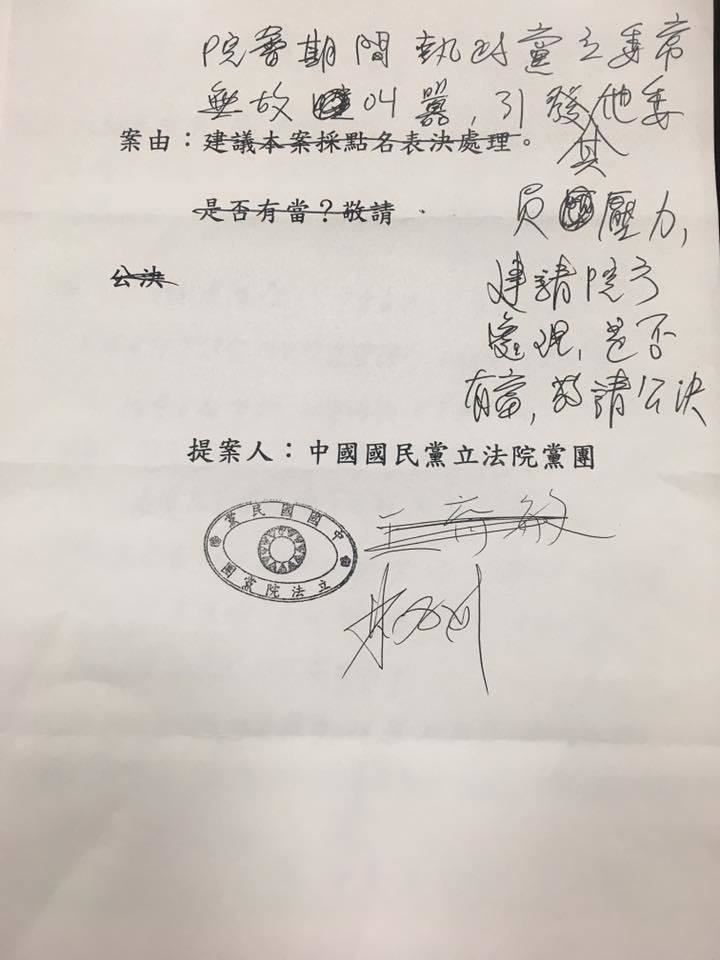 院會期間執政黨立委常
無故叫囂,引發其他委
案由：建議本案採點名表決處理。
是否有當？敬請
員壓力,
公決
建請院方
處理,是否
有當,敬請公決
提案人：中國國民黨立法院黨團
中國國民黨
立法院黨團
王育敏